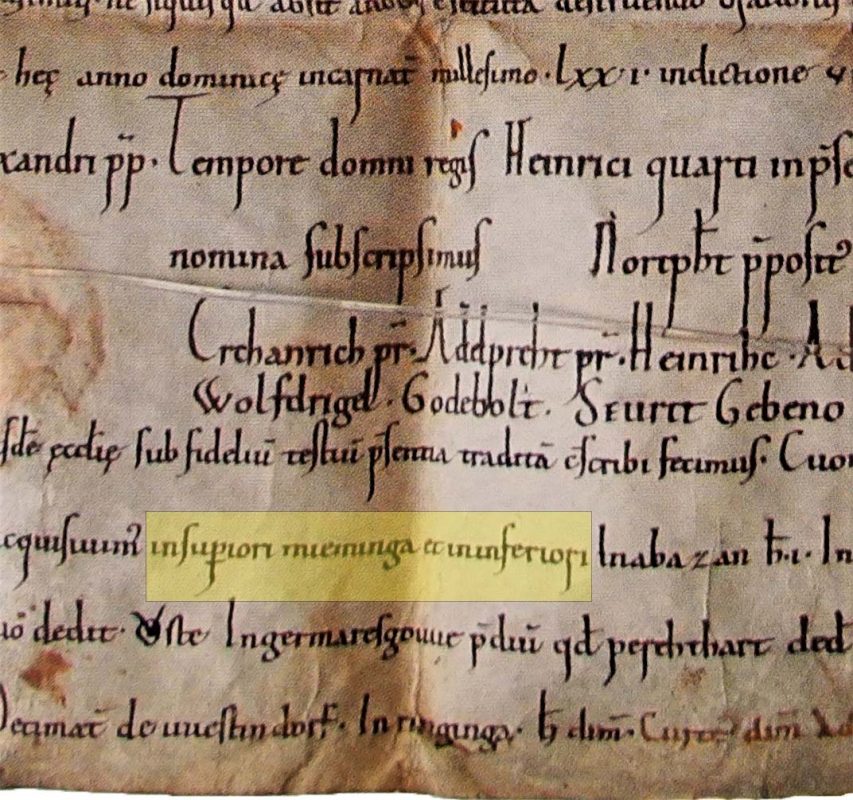 hęc anno dominicę incarnat̄ millesimo · lxx · ı · indictione
xandri p̄p · Tempore domni regis Heinrici quarti inp̄
nomina subscripsimus Nortpb̄t p̄posit᷒
Erchanrich pr̄ · Adđpreht pr̄ · Heinrihc ·
Wolfdrigel · Godebolt · Gebeno
sdē ęcclię sub fideliū testiū p̄sentia traditā c̄scribi fecimus · Cuon
cquisuim᷒ insup̄iori mieminga et ininferiori Inabazan h̄ · ı · In
uō dedit · Vste Ingermaresgouue p̄diū qđ perchthart ded̄
Decimat̄ de uuestindorf · In ringinga · h̄ dim̄ · Curt̄ dim̄